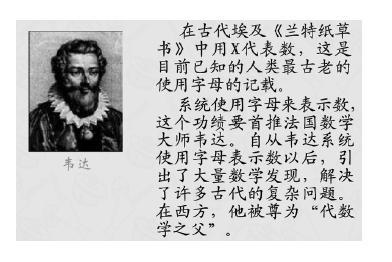 在古代埃及《兰特纸草
书》中用X代表数，这是
目前已知的人类最古老的
使用字母的记载。
系统使用字母来表示数，
这个功绩要首推法国数学
大师韦达。自从韦达系统
使用字母表示数以后，引
出了大量数学发现，解决
了许多古代的复杂问题。
在西方，他被尊为“代数
学之父”。
韦达